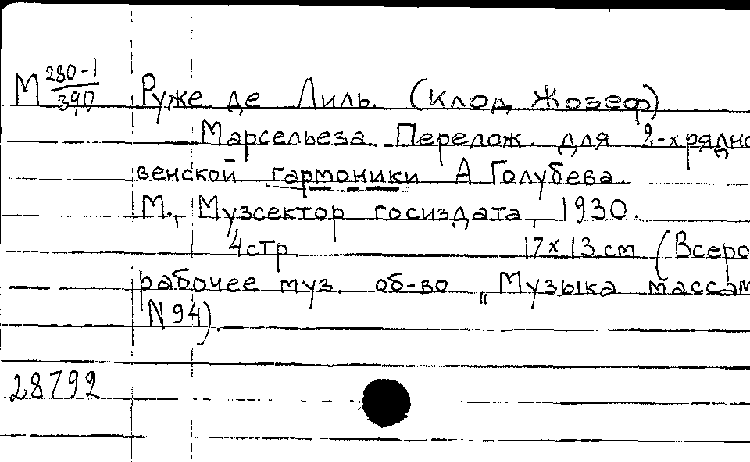 М 280-1/390 Руже де Лиль. (Клод Жозеф)
Марсельеза. Перелож. для 2-хрядно
венской гармоники А Голубева.
М., Музсектор госиздата, 1930.
4стр. 17х13cm (Всеро
рабочее муз. об-во „Музыка массам
N 94).
28792